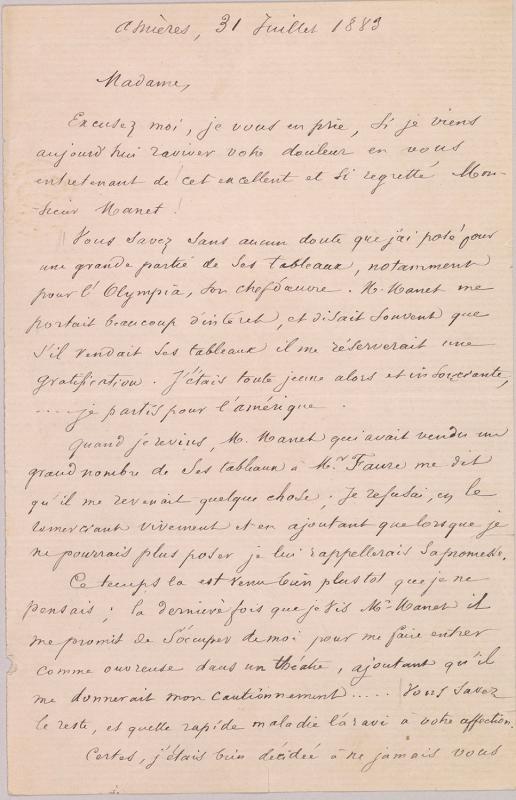 Asnières, 31 Juillet 1883
Madame,
Excusez moi, je vous en prie, si je viens
aujourd'hui raviver votre douleur en vous
entretenant de cet excellent et si regretté Mon-
-sieur Manet !
Vous savez sans aucun doute que j'ai posé pour
une grande partie de ses tableaux, notamment
pour l'Olympia, son chef d'œuvre. M. Manet me
portait beaucoup d'intéret, et disait souvent que
s'il vendait ses tableaux il me réserverait une
gratification. J'étais toute jeune alors et insouciante,
.... je partis pour l'amérique.
quand je revins, M. Manet qui avait vendu un
grand nombre de ses tableaux à Mr Faure me dit
qu'il me revenait quelque chose. Je refusai, en le
remerciant vivement et en ajoutant que lorsque je
ne pourrais plus poser je lui rappellerais sa promesse.
Ce temps la est venu bien plus tot que je ne
pensais ; la dernière fois que je vis Mr Manet il
me promit de s'occuper de moi pour me faire entrer
comme ouvreuse dans un théatre, ajoutant qu'il
me donnerait mon cautionnement ..... Vous savez
le reste, et quelle rapide maladie l'a ravi à votre affection.
Certes, j'étais bien décidée à ne jamais vous